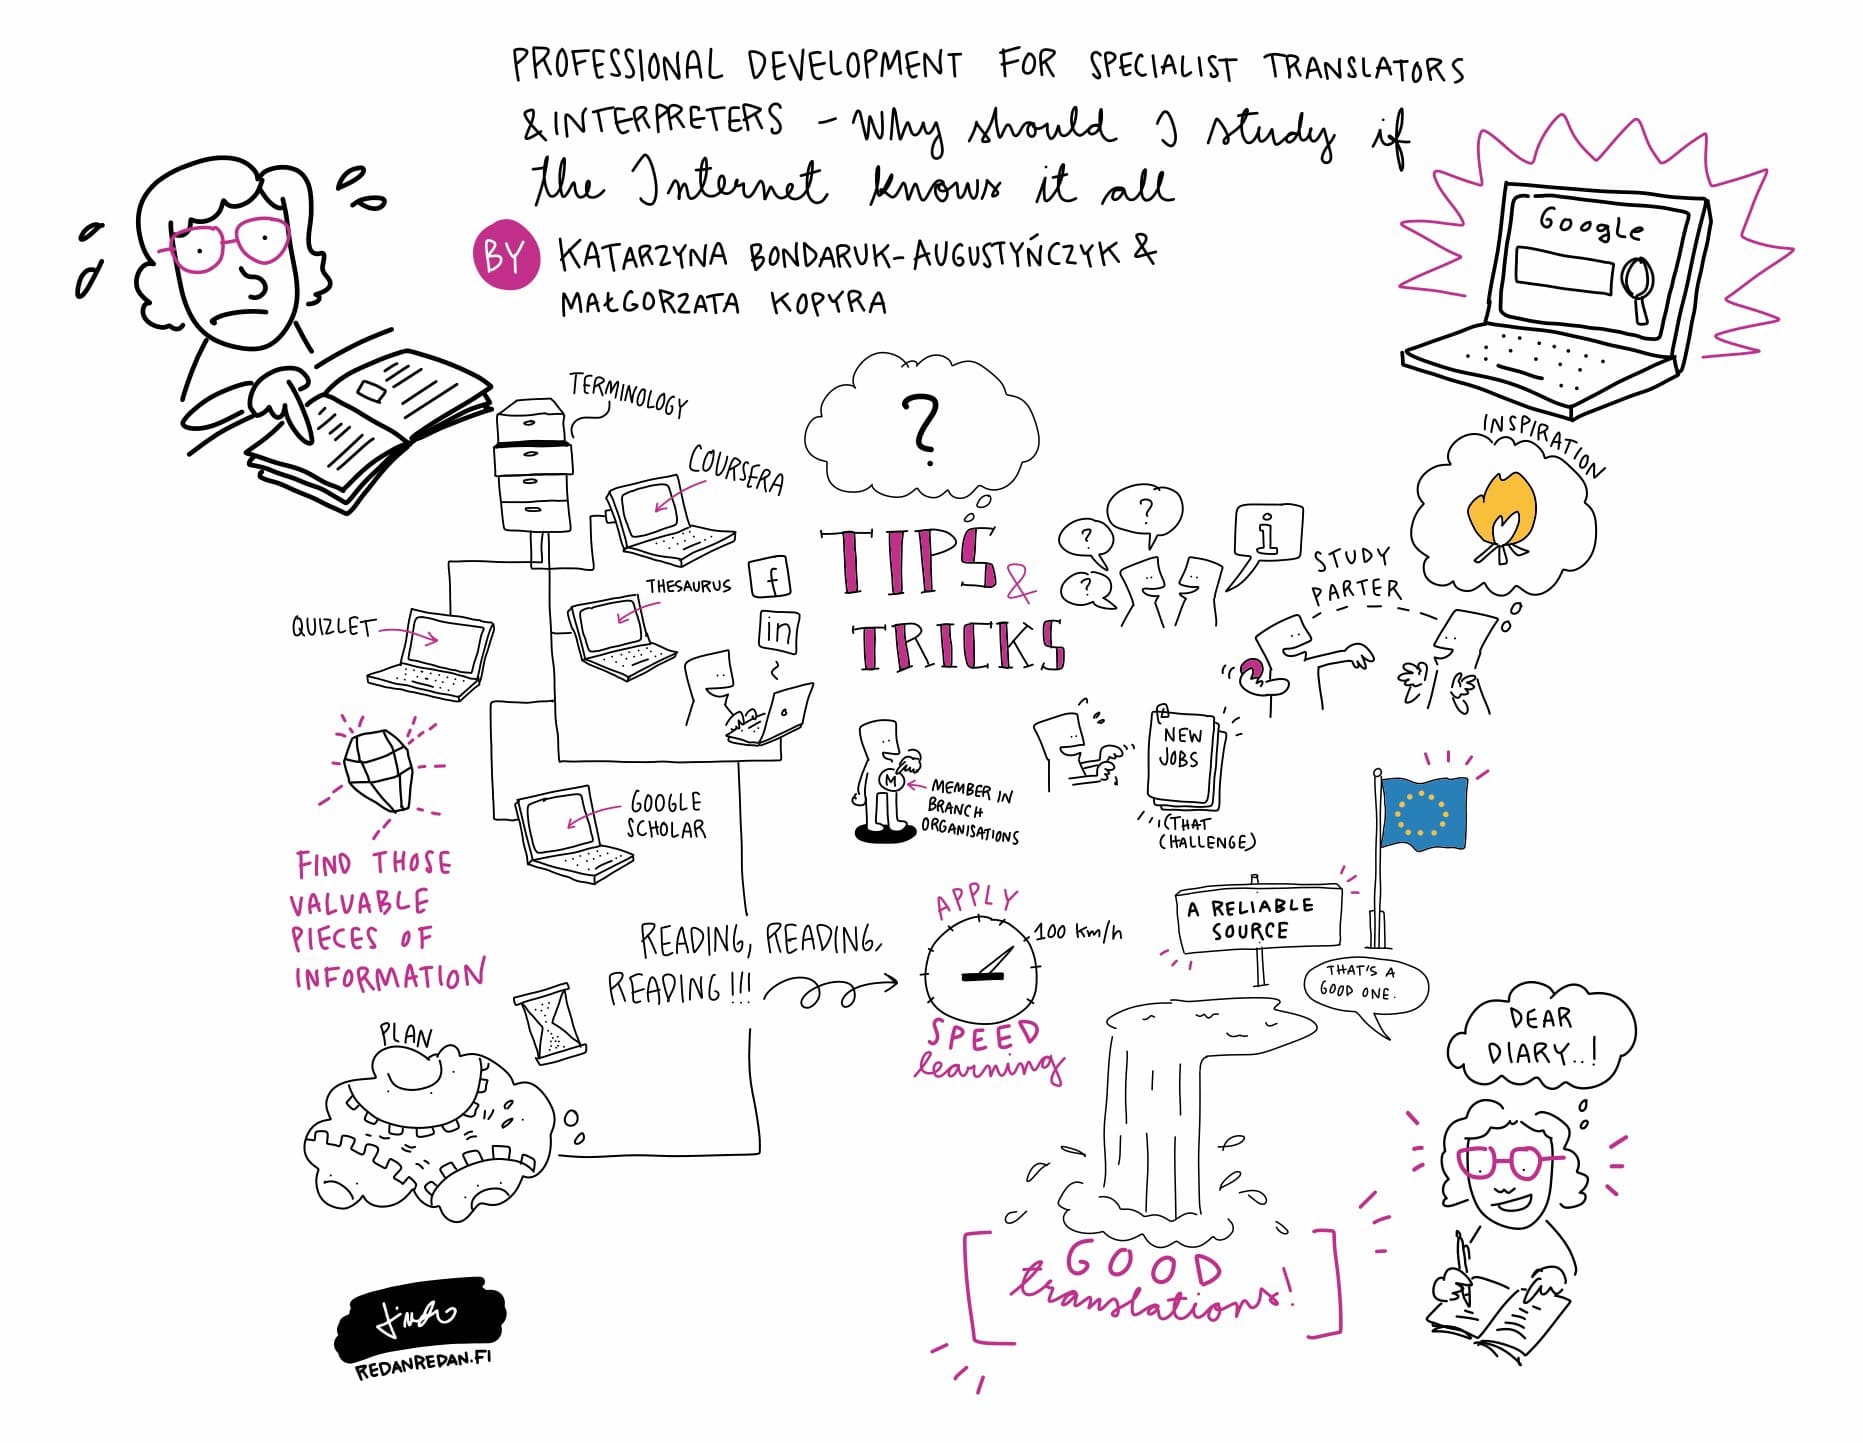 PROFESSIONAL DEVELOPMENT FOR SPECIALIST TRANSLATORS
& INTERPRETERS – Why should I study if
the Internet knows it all
BY KATARZYNA BONDARUK-AUGUSTYŃCZYK &
MAŁGORZATA KOPYRA
Google
TERMINOLOGY
COURSERA
?
INSPIRATION
TIPS
&
TRICKS
?
?
?
i
STUDY
PARTER
QUIZLET
THESAURUS
f
in
GOOGLE
SCHOLAR
M
MEMBER IN
BRANCH
ORGANISATIONS
NEW
JOBS
(THAT
CHALLENGE)
FIND THOSE
VALUABLE
PIECES OF
INFORMATION
READING, READING,
READING!!!
APPLY
100 km/h
SPEED
learning
A RELIABLE
SOURCE
THAT'S A
GOOD ONE.
PLAN
DEAR
DIARY..!
GOOD
translations!
REDANREDAN.FI